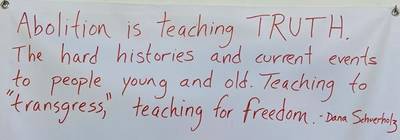 Abolition is teaching TRUTH.
The hard histories and current events
to people young and old. Teaching to
"transgress," teaching for freedom. - Dana Schverholz